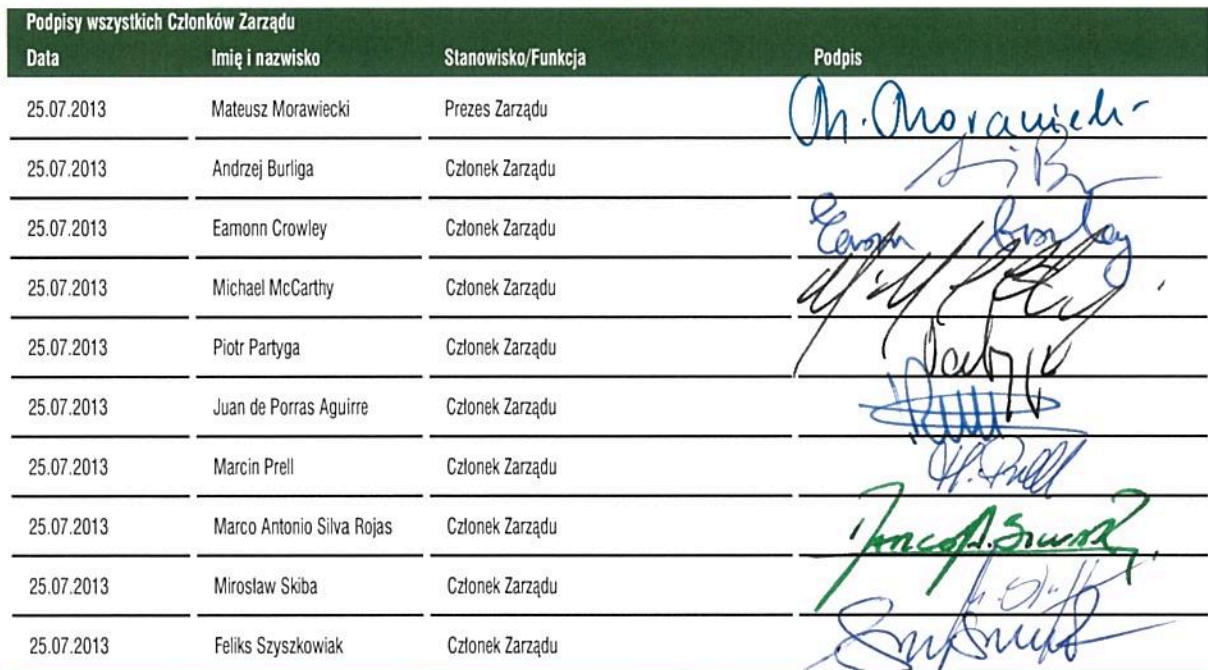 Podpisy wszystkich Członków Zarządu
Data Imię i nazwisko Stanowisko/Funkcja Podpis
25.07.2013 Mateusz Morawiecki Prezes Zarządu M. Morawiecki
25.07.2013 Andrzej Burliga Członek Zarządu
25.07.2013 Eamonn Crowley Członek Zarządu Eamonn Crowley
25.07.2013 Michael McCarthy Członek Zarządu
25.07.2013 Piotr Partyga Członek Zarządu
25.07.2013 Juan de Porras Aguirre Członek Zarządu
25.07.2013 Marcin Prell Członek Zarządu M. Prell
25.07.2013 Marco Antonio Silva Rojas Członek Zarządu
25.07.2013 Mirosław Skiba Członek Zarządu
25.07.2013 Feliks Szyszkowiak Członek Zarządu